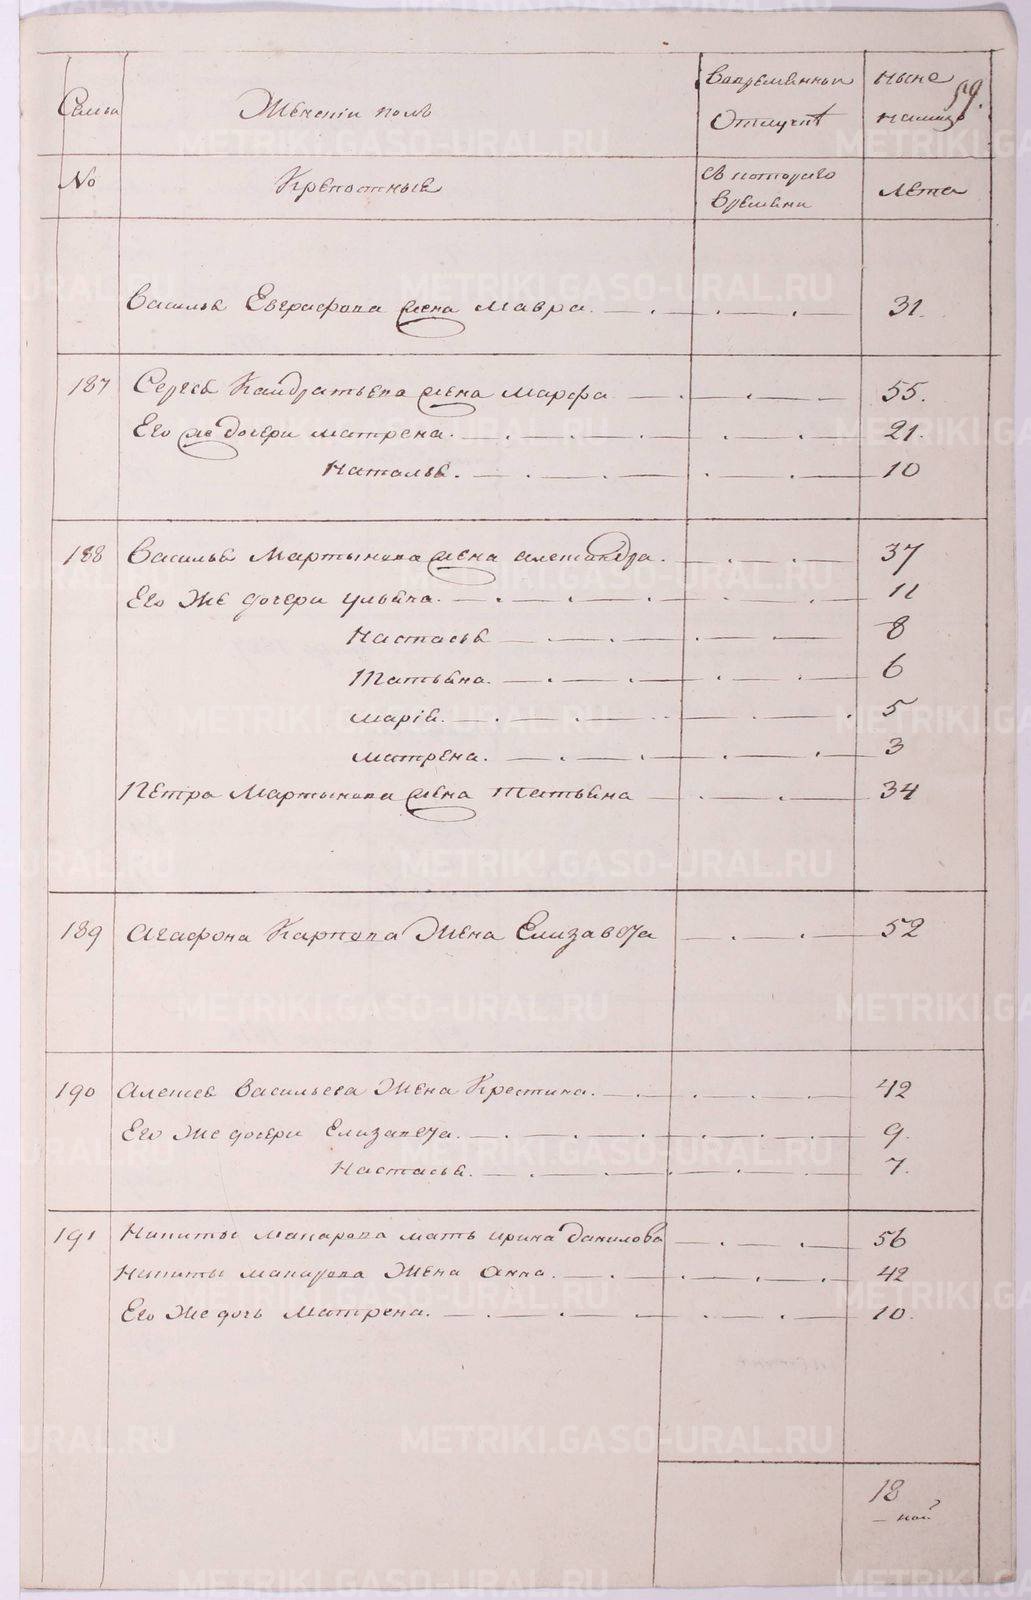 59.
Семьи Женскій полъ Во временной ныне
Отлучке налицо
No Крепостные Съ которого Лета
времени
Василья Евграфова жена Мавра 31.
187 Сергея Кандратьева жена Марфа 55.
Его же дочери Матрена 21.
Наталья 10
188 Василья Мартынова жена Александра 37
Его же дочери Ульяна 11
Настасья 8
Татьяна 6
Марія 5
Матрена 3
Петра Мартынова жена Татьяна 34
189 Агафона Карпова жена Елизавета 52
190 Алексея Васильева жена Крестина 42
Его же дочери Елизавета 9.
Настасья 7.
191 Никиты Макарова мать Ирина Данилова 56
Никиты Макарова жена Анна 42
Его же дочь Матрена 10.
18
METRIKI.GASO-URAL.RU